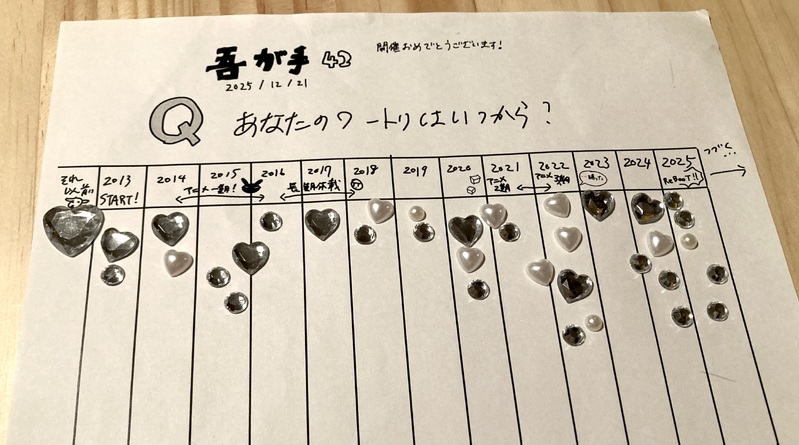 吾が手42
開催おめでとうございます!
2025/12/21
Q あなたのワートリはいつから?
それ以前
2013 START!
2014
2015
アニメ一期!
2016
2017
長期休載
2018
2019
2020
2021 アニメ2期
2022 アニメ3期
2023
2024
2025 ReBooT!!
つづく…